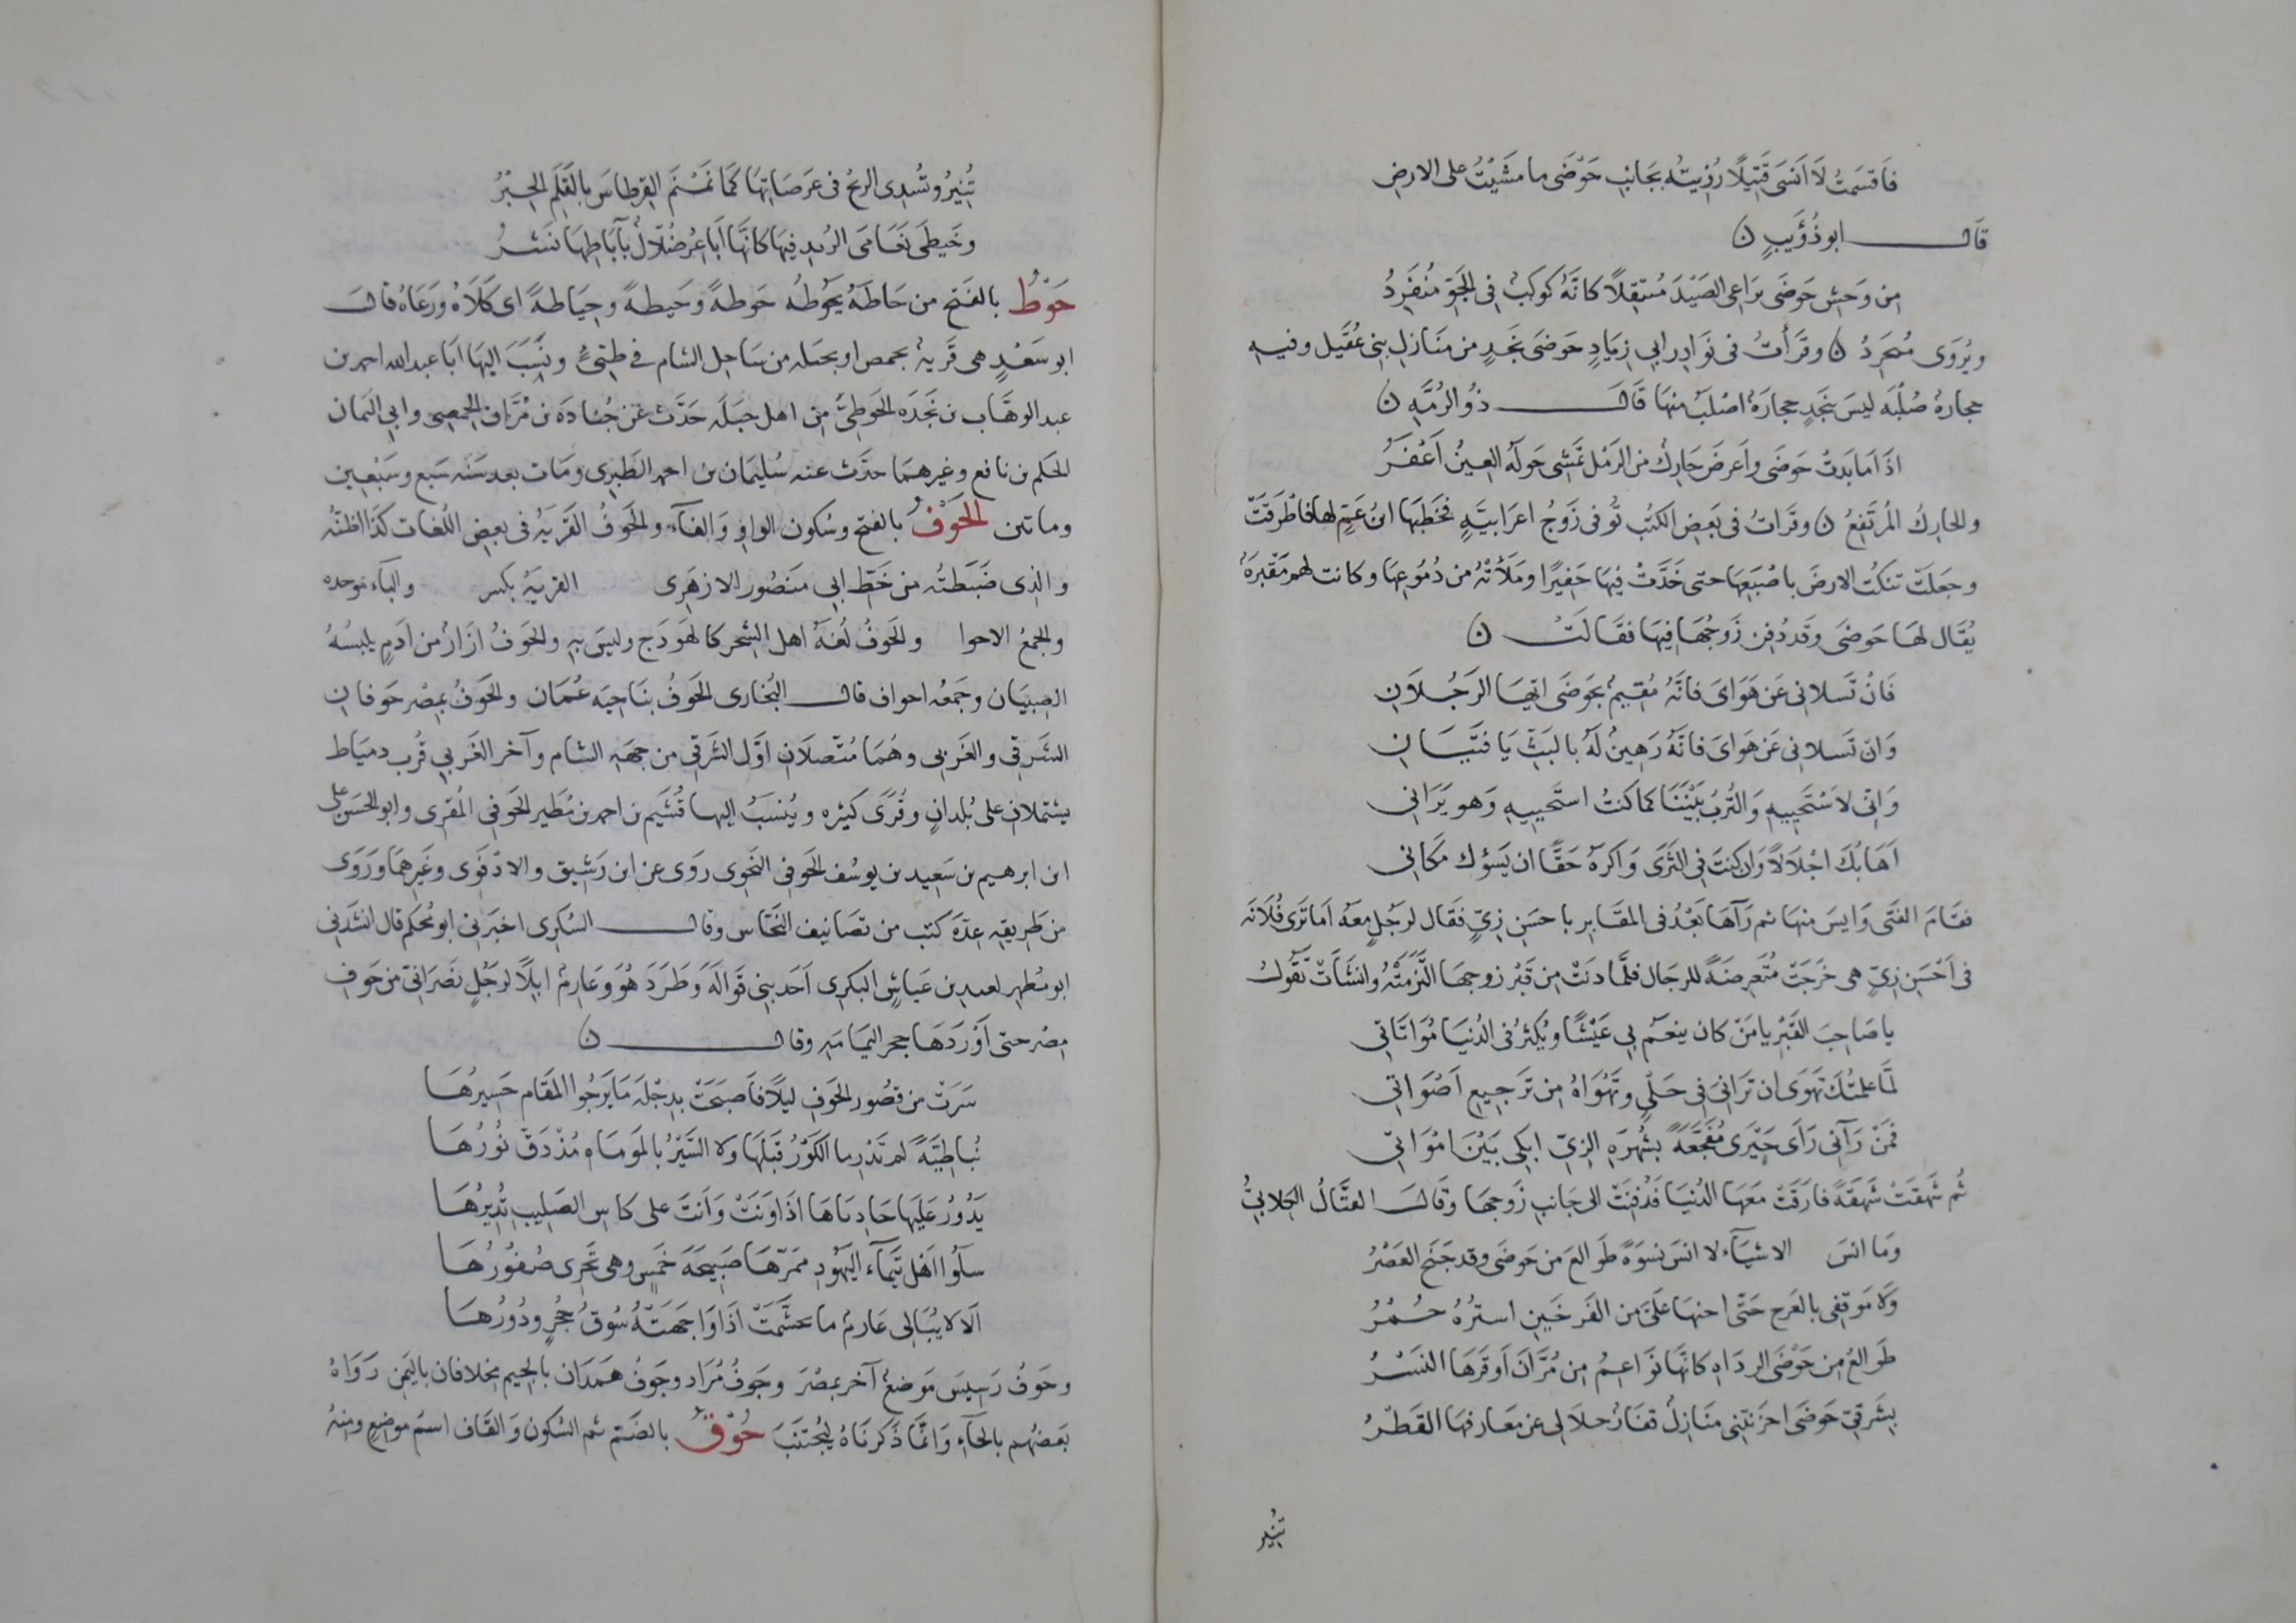 فَاقسَمتُ لَا اَنسَى قَتِيلًا رُزِيتُه بجَانبِ حَوْضَى ما مشَيْتُ على الارضِ
قَالَ ابو ذُؤَيبٍ ن
مِن وَحشِ حَوضَى يرَاعى الصَيْدَ مُنتقِلًا كانَهُ كوكبٌ فى الجَوِّ مُنفَرِدُ
ويُروَى مُنجَرِدُ ن وقَرأتُ فى نوَادِر ابى زيَادٍ حَوضَى بنَجدٍ من مَنَازِل بنى عُقَيل وفيهِ
حجارهٌ صُلْبَه ليسَ بنجَدٍ حجارَهٌ اصْلَبُ منهَا قَالَ ذُو الرُمَّهِ ن
اذَا مَا بَدتْ حَوضَى واَعرضَ حَارِكٌ من الرَمْل تمَشى حَولَهُ العِينُ اَعْفَرُ
والحارِكُ المُرتَفعُ ن وقرَاتُ فى بَعضِ الكُتبِ تُوفى زَوجُ اعرَابيَّهٍ فخَطَبَها ابنُ عَمٍّ لها فاطْرَقَتْ
وجَعلَتْ تنكُت الارضَ باصْبَعِهَا حتى خَدَّتْ فيهَا حَفِيرًا ومَلَأتْهُ من دُمُوعِهَا وكانت لهم مَقْبرَهٌ
يُقَال لهَا حَوضَى وقَد دُفِن زَوجُهَا فيهَا فقَالَتْ ن
فَانْ تَسلانى عَن هَوَاىَ فانَّهُ مُقيمٌ بحَوضَى ايّهَا الرَجُلَانِ
وَان تَسلانى عَن هَواىَ فانّهُ رَهينٌ لَهُ بالبَثِّ يَا فتَيَانِ
وَانّى لاَسْتَحيِيهِ والتُربُ بَيْننَا كما كنتُ استَحيِيهِ وَهو يَرَانى
اَهَابُكَ اجْلَالًا وَان كنتَ فى الثَرَى وَاكرَهُ حَقًا ان يَسؤكَ مَكانى
فقَامَ الفتَى وَايسَ منهَا ثم رَآهَا بَعْدُ فى المقَابِر باحسَنِ زىٍّ فقَال لرجُلٍ معَهُ اَمَا ترَى فُلَانَه
فى اَحْسَنِ زىٍّ هى خرَجَتْ مُتَعرضَهً للرجَال فلمَّا دنَتْ مِن قَبْر زوجهَا الْتَزمَتْهُ وانشَأتْ تقُولُ
يا صَاحِبَ القَبْرِ يا مَن كان ينعَمُ بى عَيْشًا ويُكثِرُ فى الدُنيَا مُوَاتَاتى
لَمَّا علمتُكَ تهَوَى ان ترَانىَ فى حَلْىٍ وتَهْوَاهُ مِن ترَجيعِ اَصْوَاتى
فمَنْ رَآنى رَأى حَيْرَى مُفَجَّعَهً بشُهرَهِ الزىِّ ابكى بَيْنَ امْوَاتى
ثُم شَهقَتْ شَهقَهً فارَقَتْ مَعَهَا الدُنيَا فَدُفنَتْ الى جَانبِ زَوجهَا وقَالَ القتَّالُ الكِلابىُّ
وَما انسَ الاشيَآءَ لا انسَ نسوَهً طَوالعَ من حَوضَى وقد جَنَحَ العَصْرُ
وَلا مَوقِفى بالعَرجِ حَتّى اجنهَا علَىَّ من الفَرخَينِ استرُهٌ حُمْرُ
طَوالعُ من حَوْضَى الردَاهِ كانّهَا نوَاعمُ مِن مُرَّانَ اَوقَرَهَا النَسْرُ
بشَرقىِّ حَوضَى احزَنتنِى مَنَازِلٌ قفَارٌ جلاَ لى عن معَارفهَا القَطْرُ
تُنِيرُ
تُنِيرُ وتُسْدِى الريحُ فى عَرَصَاتِهَا كَمَا نَمْنَمَ القِرطاسَ بالقَلَمِ الحِبْرُ
وخَيطَى نعَامَى الرُبدِ فيهَا كانّهَا اَبَاعِرُ ضُلَّالٌ بآبَاطِهَا نَشرُ
حَوْطٌ بالفتح من حَاطَهُ يحوُطُه حَوطهً وحَيطهً وحِيَاطهً اى كَلَأهُ ورَعَاهُ قالَ
ابو سَعْدٍ هى قَريهٌ بحمص او بجبله من سَاحِل الشام فى ظنىّ ونُسِبَ اليهَا ابَا عبد الله احمد بن
عبد الوهَّاب بن نَجْدَه الحَوطِىَّ مِن اهل جَبَلَه حَدَّث عَن جُنَادَه بن مُرّان الحِمصىِ وابى اليَمان
الحكم بن نافع وغيرهمَا حدَّث عنه سُليمَان بن احمد الطبرى ومَات بعد سَنَه سَبع وسَبْعِين
وماتين الحَوْفُ بالفتح وسُكون الواوِ وَالفآءِ والحَوفُ القَريَهُ فى بعضِ اللُغات كذَا اظنُّه
والذى ضَبَطتُه من خَطّ ابى منصُور الازهَرى القربَهُ بكسر والبآء موحده
والجمعُ الاحوا والحَوفُ لُغَهُ اهل الشحر كالهَودَج وليسَ بهِ والحَوفُ ازَارٌ من ادَمٍ يلبَسُهُ
الصِبيَان وجَمعُه احواف قالَ البُخارى الحَوفُ بنَاحيَه عُمَان والحَوفُ بمِصْر حَوفانِ
الشرَقى والغَربى وهُمَا متّصلَان اوّل الشَرقى من جِهَهِ الشام وآخر الغَربى قُرب دميَاط
يشتملان على بُلدانٍ وقُرًى كثيره ويُنسَبُ اليها قُشَيم بن احمد بن مُطَير الحَوفى المُقرى وابو الحَسَن على
ابن ابرهيم بن سَعِيد بن يوسُف الحَوفى النَحوى روَى عن ابن رَشيق والادْفَوى وغَيرهمَا ورَوَى
من طَريقهِ عِدّهَ كتب من تصَانيف النَحَّاس وقالَ السُكرى اخبَرنى ابو مُحكَم قال انشدَنى
ابو مُطهر لعبيد بن عَياشٍ البَكرى اَحَد بنى قوَالَهَ وَطَرَدَ هُوَ وعَارِمٌ ابِلًا لرجُلٍ نصَرَانىّ من حَوفِ
مِصْر حتى اَوْرَدَهَا حجر اليمَامَهِ وقالَ ن
سَرَتْ من قصُور الحَوفِ ليلًا فاَصبَحَتْ بدِجْلَه مَا يَرجُوا المقَامَ حَسِيرُهَا
نُباطِيّهً لم تَدْرِ ما الكَوْرُ قَبلَهَا وَلا السَيْرُ بالمَومَاهِ مُذْ دَقَّ نُورُهَا
يَدُورُ عَليهَا حَادِيَاهَا اذَا وَنَتْ وَاَنتَ على كاس الصَلِيبِ تُدِيرُهَا
سَلُوا اَهَل تَيمآءَ اليَهُودِ مَمَرّهَا صَبِيحَهَ خَمسٍ وهى تَجرِى صُفُورُهَا
اَلا لا يُبَالِى عَارِمٌ ما تجشَّمَتْ اذَا وَاجَهَتْهُ سُوقُ حُجرٍ ودُورُهَا
وحَوفُ رَسِيسَ مَوضعٌ آخر بمصْرَ وجَوفُ مُرَاد وجَوفُ هَمدَان بالجيم مخلافان باليَمن رَوَاهُ
بَعضُهم بالحآءِ وَانّمَا ذَكرنَاهُ ليُجتنَبَ حُوْقٌ بالضَم ثم السُكون وَالقَاف اسمُ موَاضعٍ ومنهُ